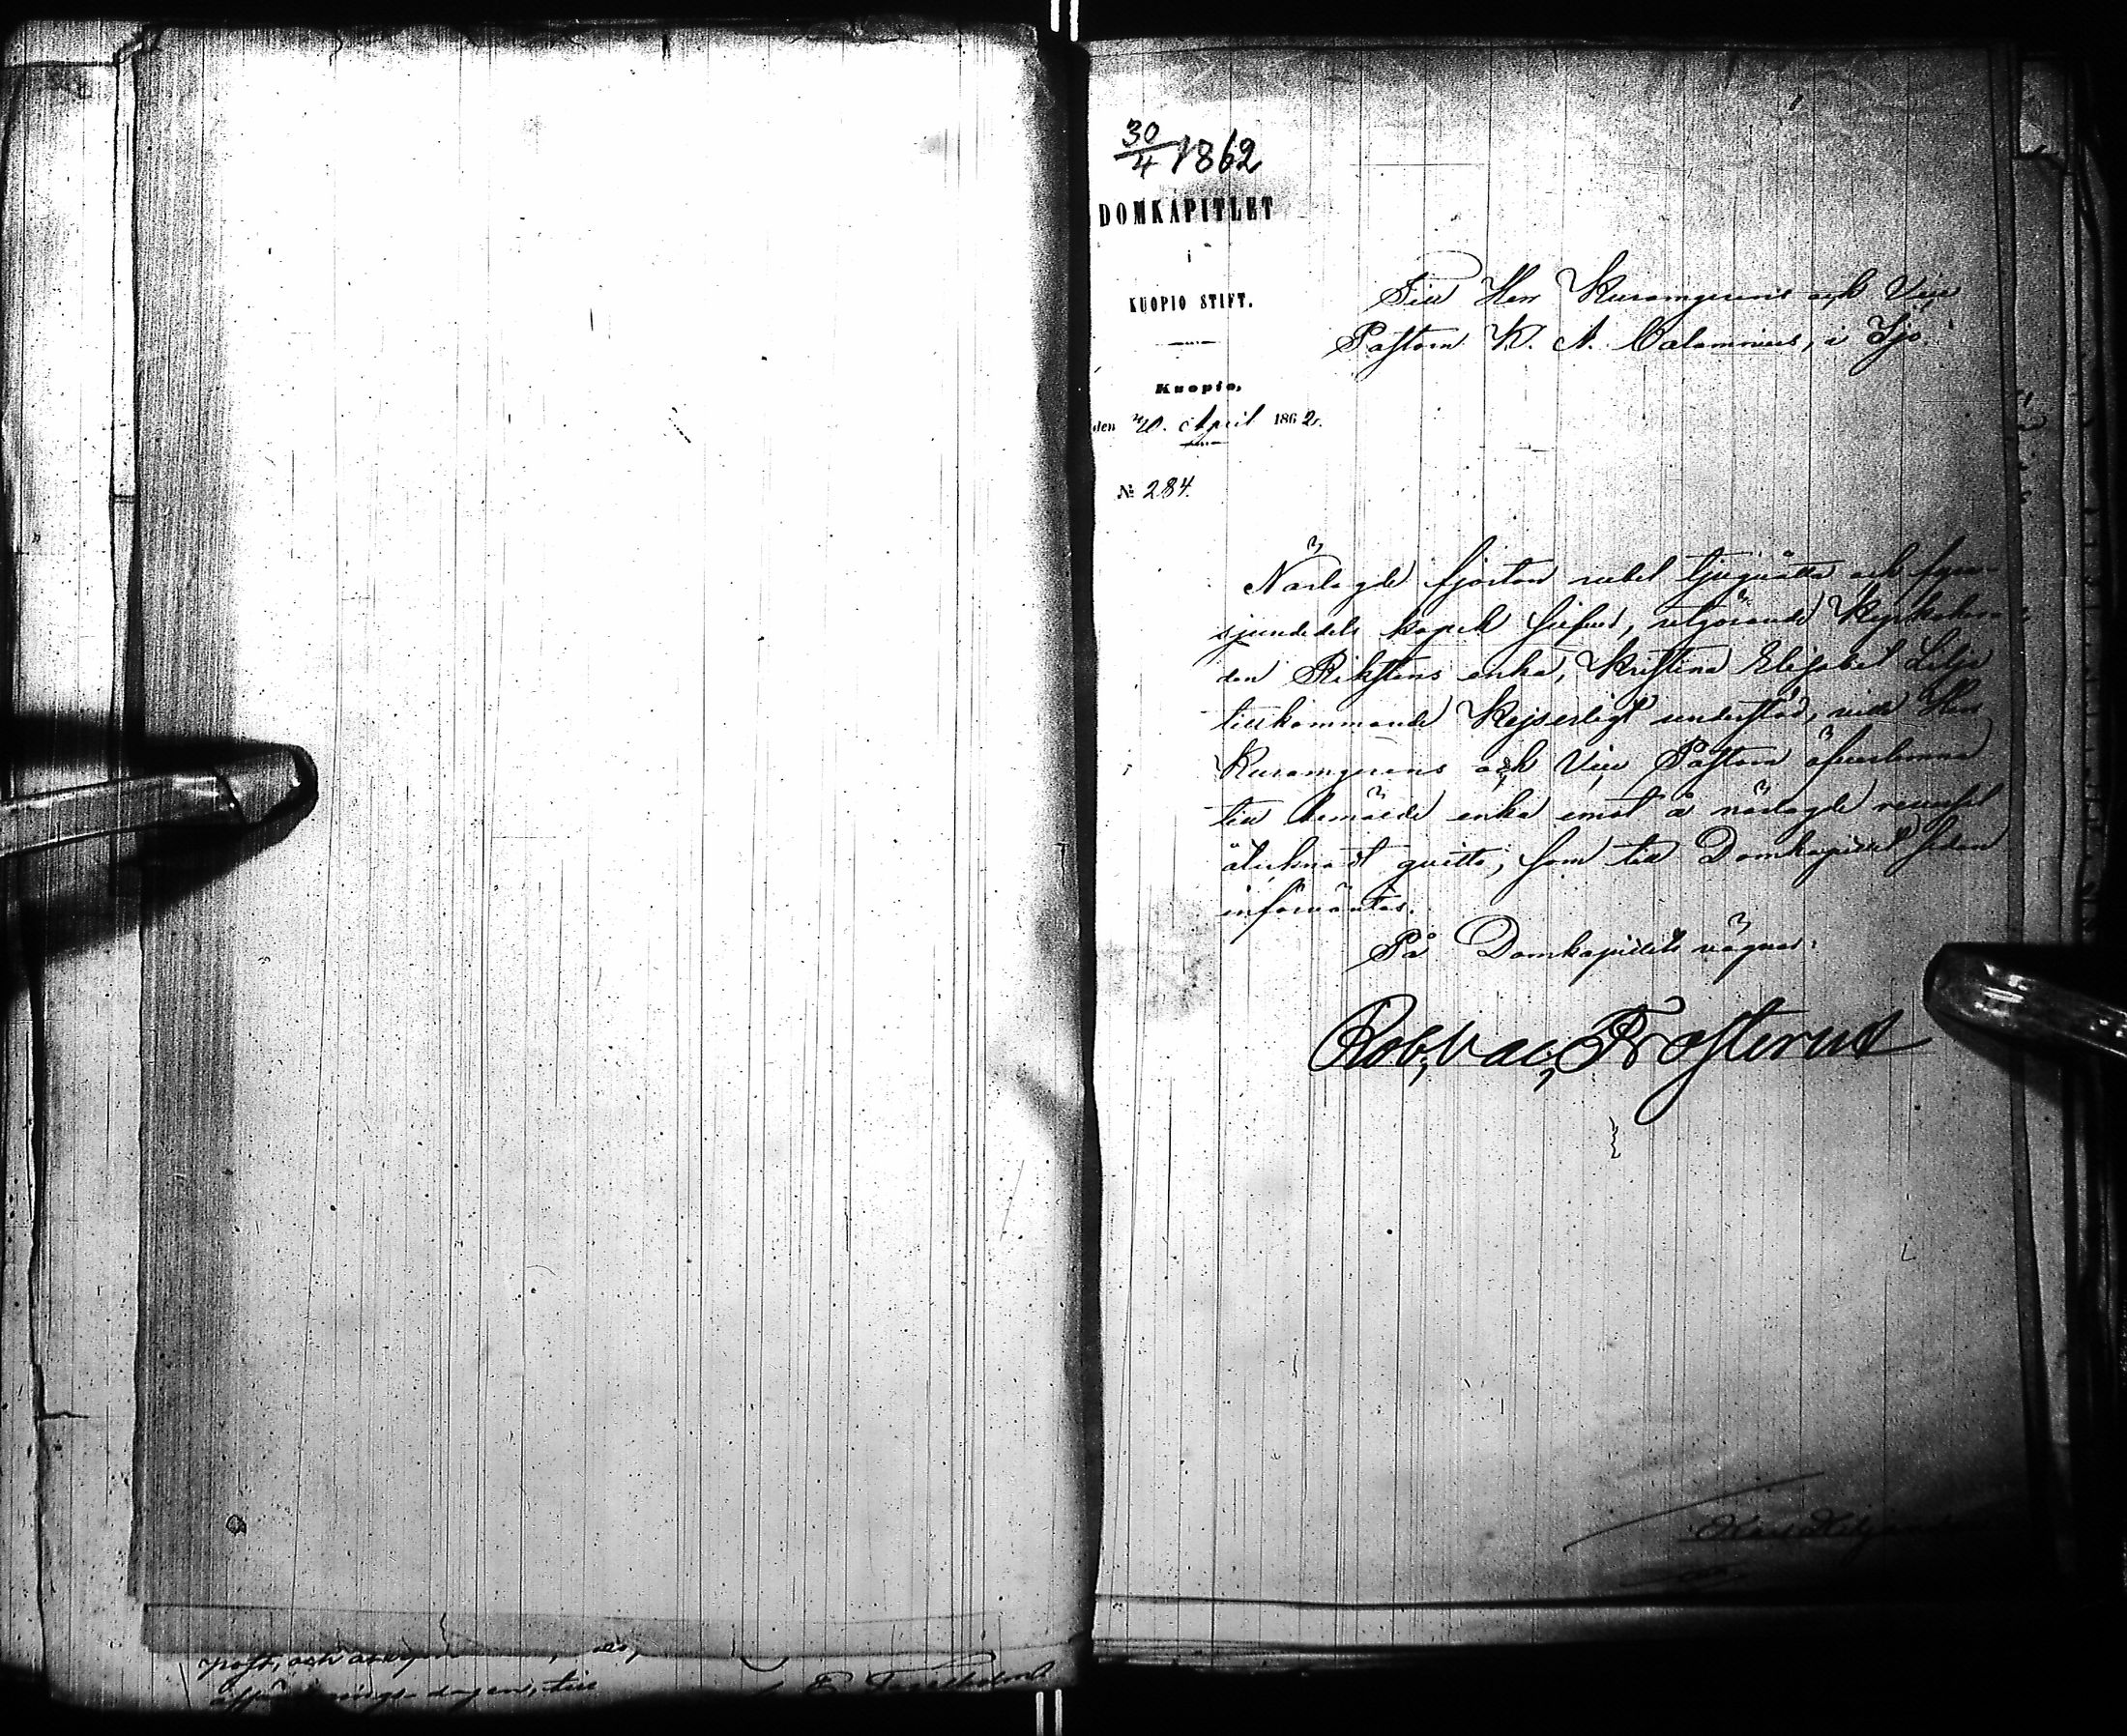 30/4 1862
DOMKAPITLET
i
KUOPIO STIFT.
Kuopio,
den 20. April 1862.
№ 284.
Till Herr Kuramgerens och Vice
Pastorn K. A. Calamnius, i Ijo
Närlagde fjorton rubel tjuguåtta och fyra-
sjundedels kopek silfver, utgörande Kyrkoher-
den Rikstens enka, Kristina Elisabet Lilja
tillkommande Kejserligt understöd, ville Herr
Kuramgerens och Vice Pastorn öfverlemna
till bemälde enka emot å närlagde reversal
åtecknadt quitto, som till Domkapitlet sedan
införväntas.
På Domkapitlets vägnar:
Rob. Val. Frosterus
post, och
dagen, till